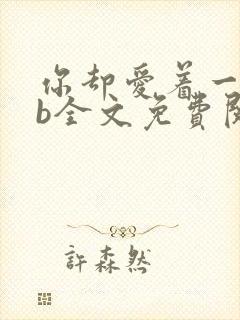 你却爱着一
b全文免费阅
許森然